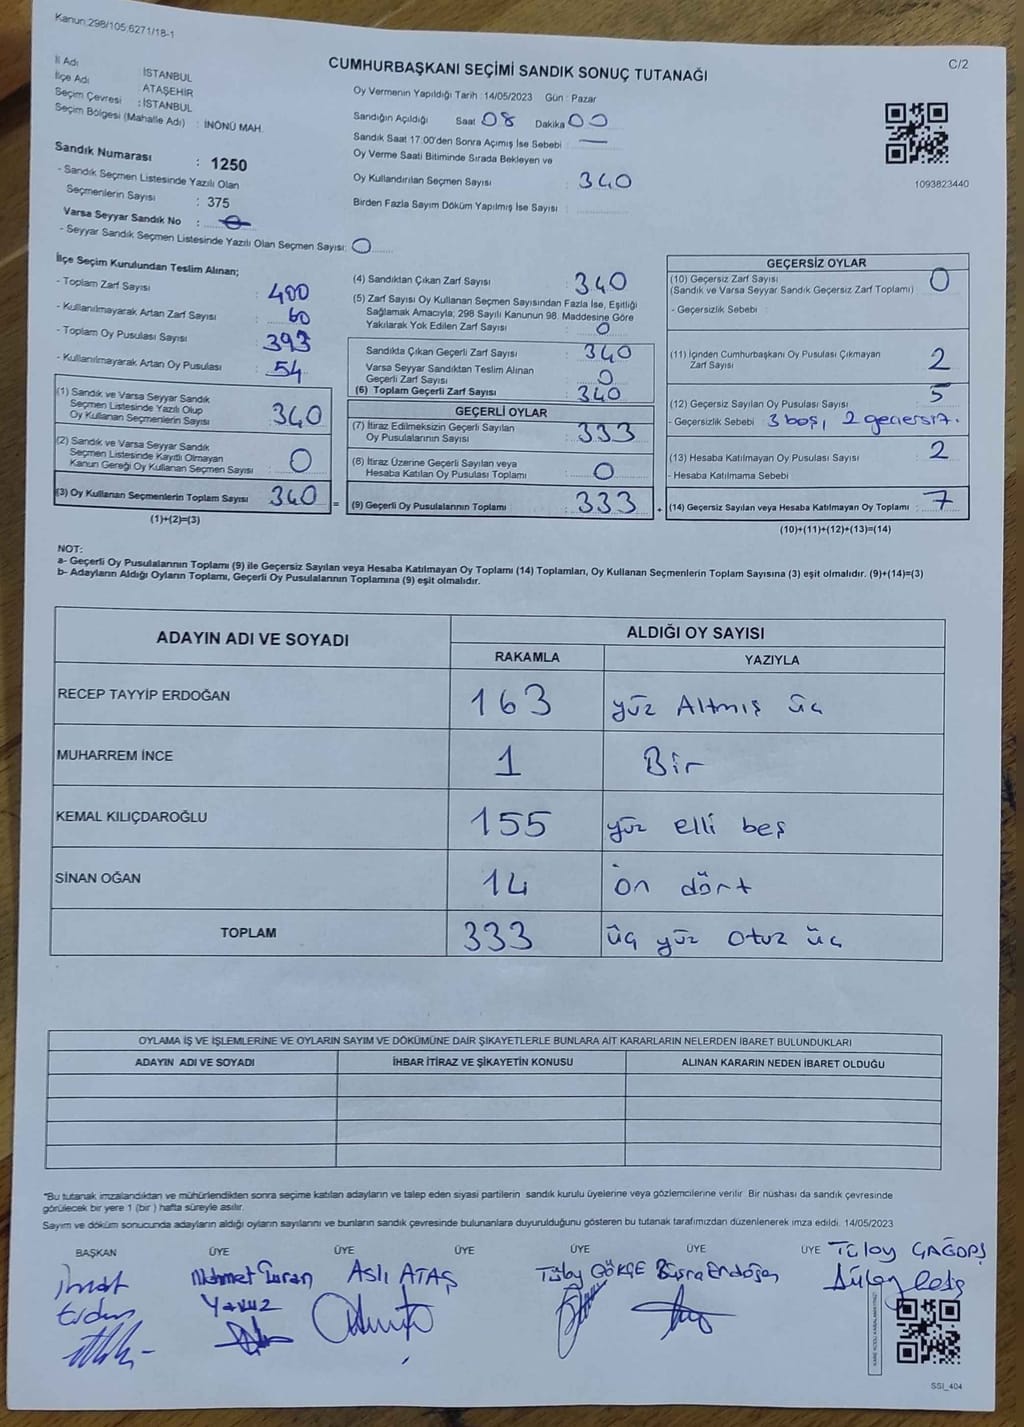 Kanun:298/105.6271/18-1
C/2
CUMHURBAŞKANI SEÇİMİ SANDIK SONUÇ TUTANAĞI
İl Adı : İSTANBUL
İlçe Adı : ATAŞEHİR
Seçim Çevresi : İSTANBUL
Seçim Bölgesi (Mahalle Adı) : İNÖNÜ MAH.
Sandık Numarası : 1250
- Sandık Seçmen Listesinde Yazılı Olan
Seçmenlerin Sayısı : 375
Varsa Seyyar Sandık No : 0
- Seyyar Sandık Seçmen Listesinde Yazılı Olan Seçmen Sayısı: 0
Oy Vermenin Yapıldığı Tarih : 14/05/2023 Gün : Pazar
Sandığın Açıldığı Saat 08 Dakika 00
Sandık Saat 17.00'den Sonra Açımış İse Sebebi : —
Oy Verme Saati Bitiminde Sırada Bekleyen ve
Oy Kullandırılan Seçmen Sayısı : 340
Birden Fazla Sayım Döküm Yapılmış İse Sayısı :
1093823440
İlçe Seçim Kurulundan Teslim Alınan;
- Toplam Zarf Sayısı : 400
- Kullanılmayarak Artan Zarf Sayısı : 60
- Toplam Oy Pusulası Sayısı : 393
- Kullanılmayarak Artan Oy Pusulası : 54
(1) Sandık ve Varsa Seyyar Sandık
Seçmen Listesinde Yazılı Olup
Oy Kullanan Seçmenlerin Sayısı : 340
(2) Sandık ve Varsa Seyyar Sandık
Seçmen Listesinde Kayıtlı Olmayan
Kanun Gereği Oy Kullanan Seçmen Sayısı : 0
(3) Oy Kullanan Seçmenlerin Toplam Sayısı : 340 =
(1)+(2)=(3)
(4) Sandıktan Çıkan Zarf Sayısı : 340
(5) Zarf Sayısı Oy Kullanan Seçmen Sayısından Fazla İse, Eşitliği
Sağlamak Amacıyla; 298 Sayılı Kanunun 98. Maddesine Göre
Yakılarak Yok Edilen Zarf Sayısı : 0
Sandıkta Çıkan Geçerli Zarf Sayısı : 340
Varsa Seyyar Sandıktan Teslim Alınan
Geçerli Zarf Sayısı : 0
(6) Toplam Geçerli Zarf Sayısı : 340
GEÇERLİ OYLAR
(7) İtiraz Edilmeksizin Geçerli Sayılan
Oy Pusulalarının Sayısı : 333
(8) İtiraz Üzerine Geçerli Sayılan veya
Hesaba Katılan Oy Pusulası Toplamı : 0
(9) Geçerli Oy Pusulalarının Toplamı : 333 +
GEÇERSİZ OYLAR
(10) Geçersiz Zarf Sayısı : 0
(Sandık ve Varsa Seyyar Sandık Geçersiz Zarf Toplamı)
- Geçersizlik Sebebi :
(11) İçinden Cumhurbaşkanı Oy Pusulası Çıkmayan
Zarf Sayısı : 2
(12) Geçersiz Sayılan Oy Pusulası Sayısı : 5
- Geçersizlik Sebebi : 3 boş, 2 geçersiz.
(13) Hesaba Katılmayan Oy Pusulası Sayısı : 2
- Hesaba Katılmama Sebebi :
(14) Geçersiz Sayılan veya Hesaba Katılmayan Oy Toplamı : 7
(10)+(11)+(12)+(13)=(14)
NOT:
a- Geçerli Oy Pusulalarının Toplamı (9) ile Geçersiz Sayılan veya Hesaba Katılmayan Oy Toplamı (14) Toplamları, Oy Kullanan Seçmenlerin Toplam Sayısına (3) eşit olmalıdır. (9)+(14)=(3)
b- Adayların Aldığı Oyların Toplamı, Geçerli Oy Pusulalarının Toplamına (9) eşit olmalıdır.
ADAYIN ADI VE SOYADI
ALDIĞI OY SAYISI
RAKAMLA YAZIYLA
RECEP TAYYİP ERDOĞAN 163 yüz Altmış üç
MUHARREM İNCE 1 Bir
KEMAL KILIÇDAROĞLU 155 yüz elli beş
SİNAN OĞAN 14 on dört
TOPLAM 333 üç yüz otuz üç
OYLAMA İŞ VE İŞLEMLERİNE VE OYLARIN SAYIM VE DÖKÜMÜNE DAİR ŞİKAYETLERLE BUNLARA AİT KARARLARIN NELERDEN İBARET BULUNDUKLARI
ADAYIN ADI VE SOYADI İHBAR İTİRAZ VE ŞİKAYETİN KONUSU ALINAN KARARIN NEDEN İBARET OLDUĞU
"Bu tutanak imzalandıktan ve mühürlendikten sonra seçime katılan adayların ve talep eden siyasi partilerin sandık kurulu üyelerine veya gözlemcilerine verilir. Bir nüshası da sandık çevresinde
görülecek bir yere 1 (bir ) hafta süreyle asılır.
Sayım ve döküm sonucunda adayların aldığı oyların sayılarını ve bunların sandık çevresinde bulunanlara duyurulduğunu gösteren bu tutanak tarafımızdan düzenlenerek imza edildi. 14/05/2023
BAŞKAN ÜYE ÜYE ÜYE ÜYE ÜYE ÜYE
Mehmet Turan Aslı ATAŞ Tülay GÖKÇE Büşra Erdoğan Tülay
Yavuz
SSI_404